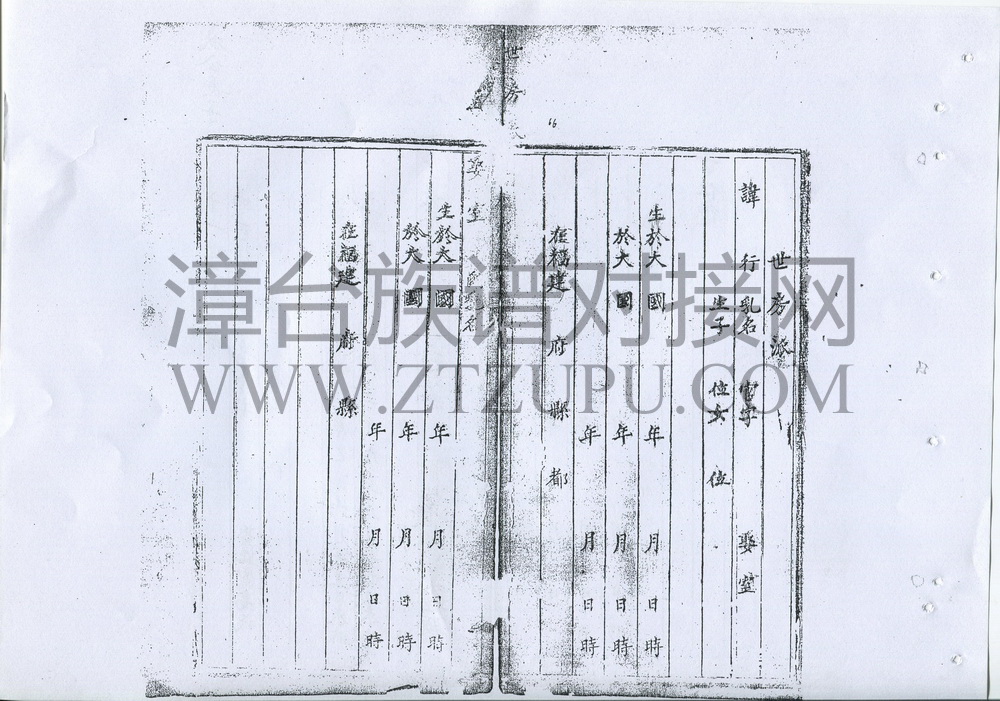 世房派
諱 行乳名 官字 娶室
生子 位女 位
生於大國 年 月 日時
於大國 年 月 日時
年 月 日時
在福建 府 縣 都
世房
娶室 名
生於大國 年 月 日時
於大國 年 月 日時
年 月 日時
在福建 府 縣
漳台族谱对接网
WWW.ZTZUPU.COM